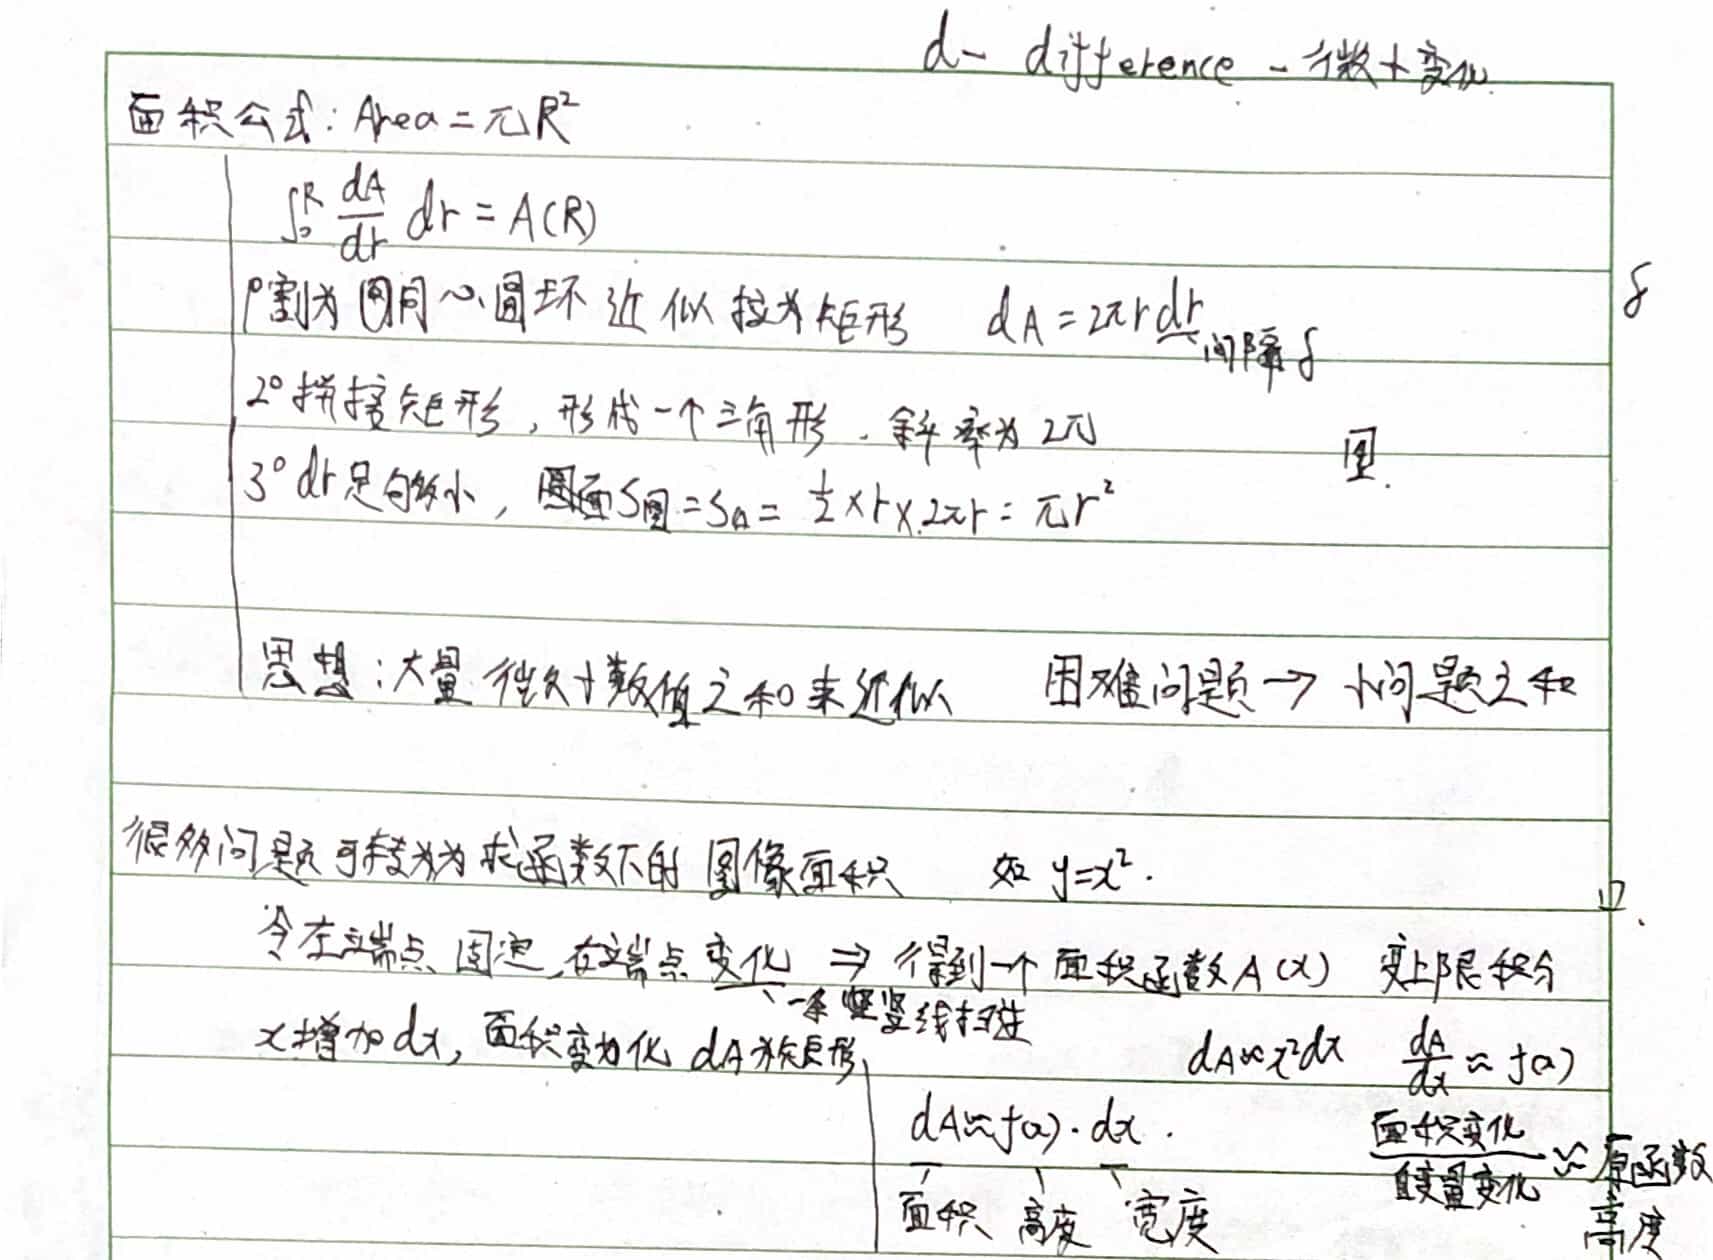 d - difference - 微小变化
面积公式: Area = πR²
∫₀ᴿ dA/dr dr = A(R)
1° 割为同心圆环 近似拉为矩形 dA = 2πr dr
间隔 δ
δ
2° 拼接矩形, 形成一个三角形. 斜率为 2π
图.
3° dr足够小, 圆面S圆 = S△ = 1/2 × r × 2πr = πr²
思想: 大量微小数值之和来近似 困难问题 → 小问题之和
很多问题可转为求函数下的图像面积 如 y=x².
令左端点固定, 右端点变化 ⇒ 得到一个面积函数A(x) 变上限积分
一条竖线扫过
x增加dx, 面积变化 dA为矩形 dA≈x²dx dA/dx ≈ f(x)
dA≈f(x)·dx. 面积变化/自变量变化 ≈ 原函数
面积 高度 宽度 高度